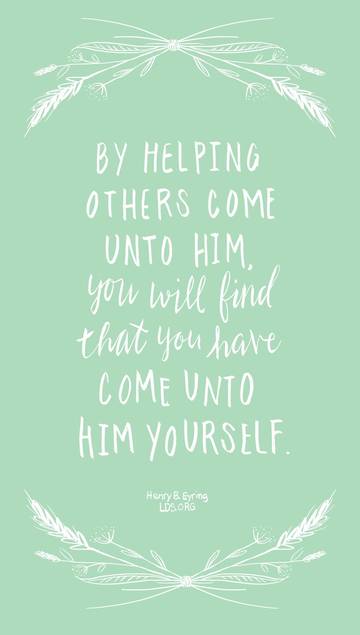 BY HELPING
OTHERS COME
UNTO HIM,
you will find
that you have
COME UNTO
HIM YOURSELF.
Henry B. Eyring
LDS.ORG